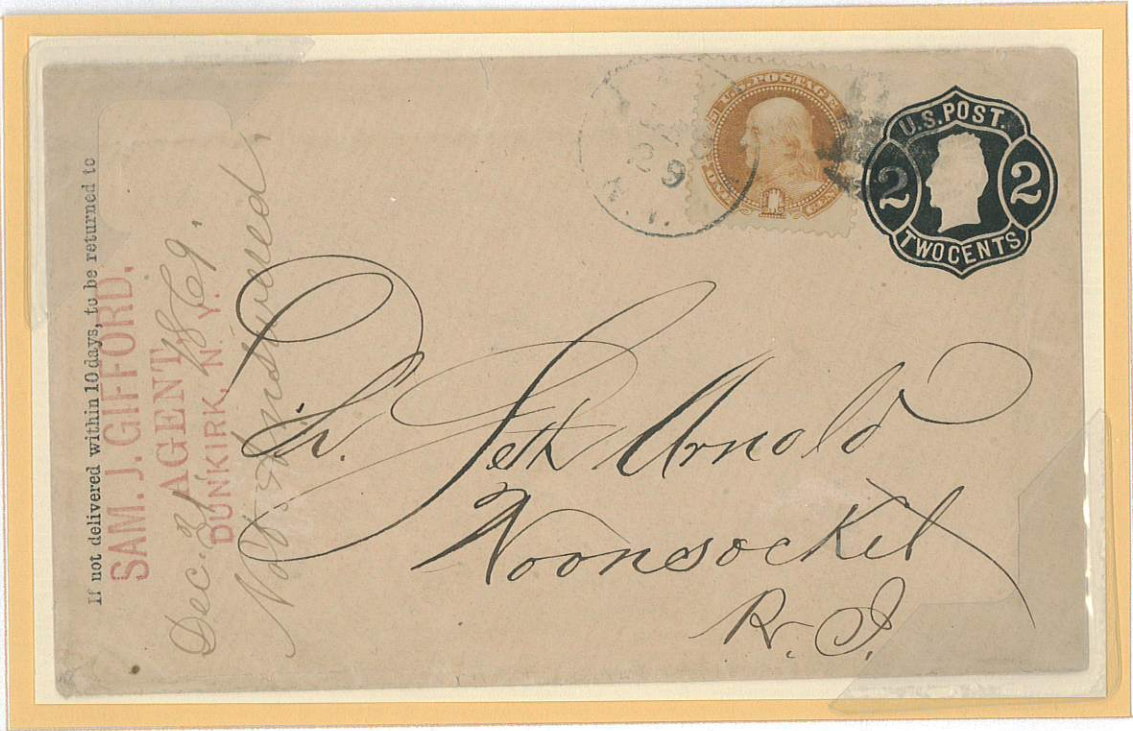 If not delivered within 10 days, to be returned to
SAM. J. GIFFORD,
AGENT,
DUNKIRK, N.Y.
Dec. 31 1869.
Not Answered.
29
N.Y.
U.S. POSTAGE
ONE 1 CENT
U.S. POST.
2 2
TWO CENTS
Dr. Seth Arnold
Woonsocket
R. I.